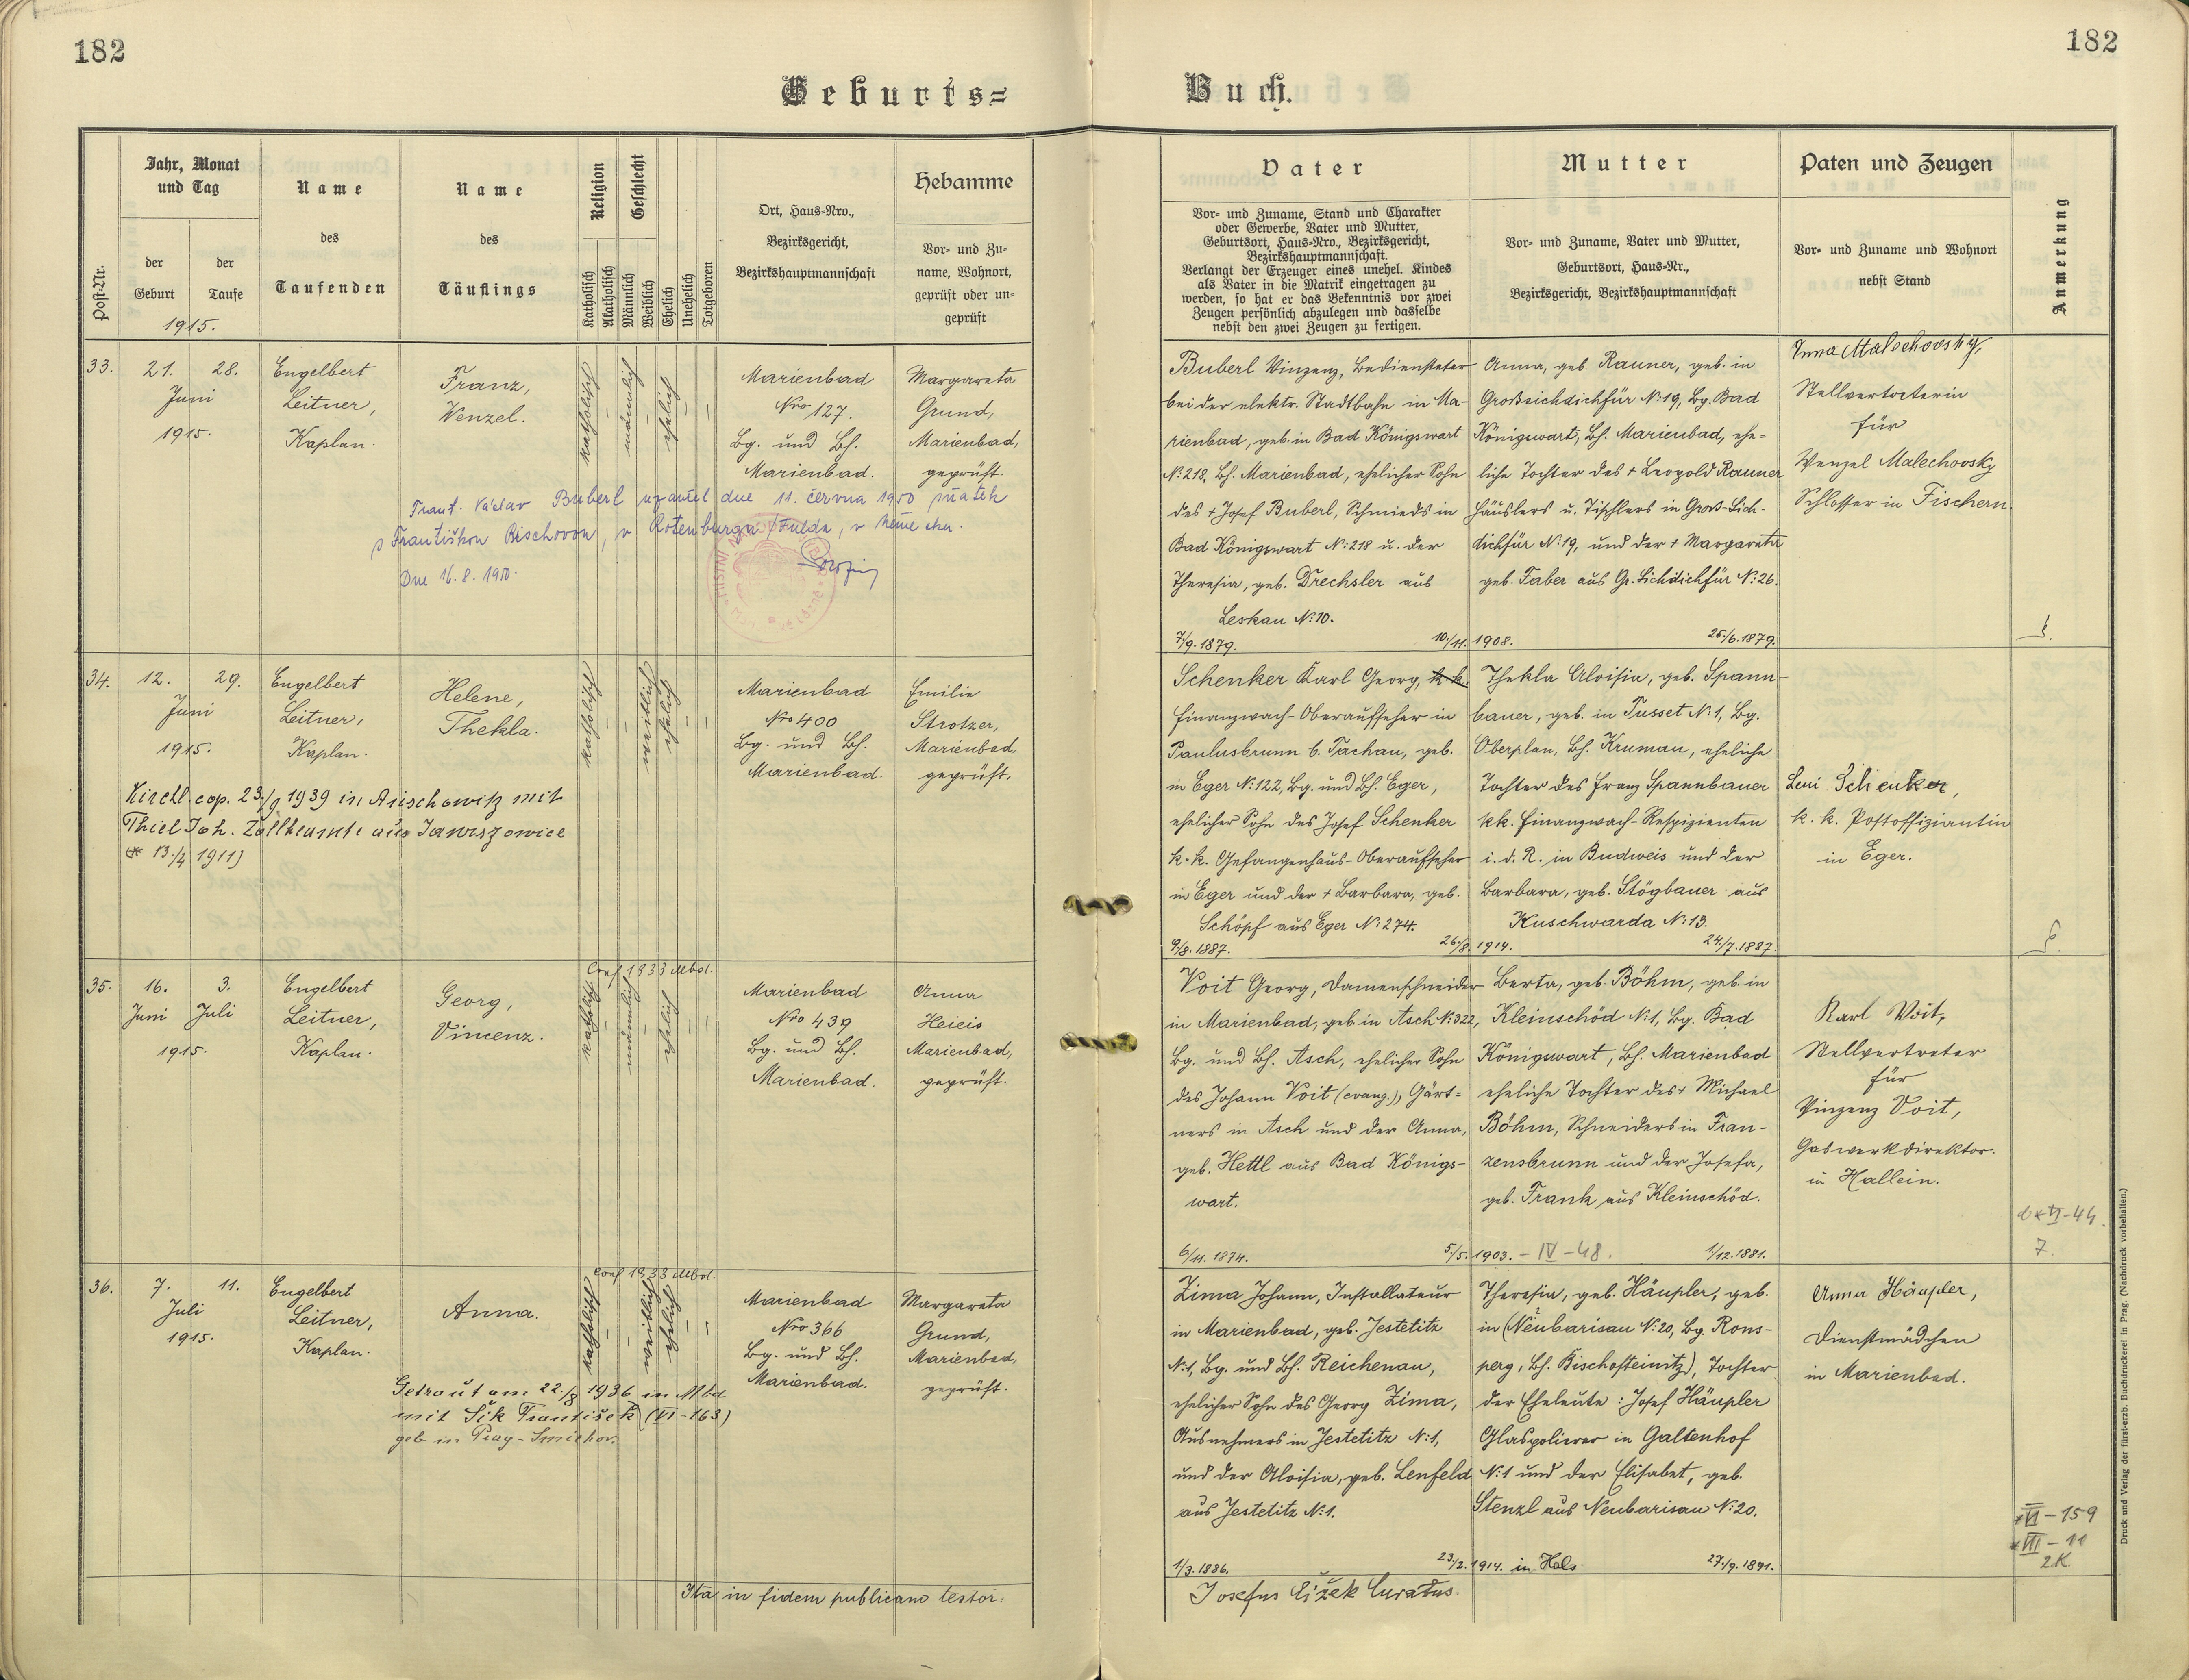 182
182
Geburts=
Buch.
Post-Nr.
Jahr, Monat
und Tag
der
Geburt
der
Taufe
1915.
Name
des
Taufenden
Name
des
Täuflings
Religion
Katholisch
Akatholisch
Geschlecht
Männlich
Weiblich
Ehelich
Unehelich
Totgeboren
Ort, Haus-Nro.,
Bezirksgericht,
Bezirkshauptmannschaft
Hebamme
Vor- und Zu-
name, Wohnort,
geprüft oder un-
geprüft
Vater
Vor- und Zuname, Stand und Charakter
oder Gewerbe, Vater und Mutter,
Geburtsort, Haus-Nro., Bezirksgericht,
Bezirkshauptmannschaft.
Verlangt der Erzeuger eines unehel. Kindes
als Vater in die Matrik eingetragen zu
werden, so hat er das Bekenntnis vor zwei
Zeugen persönlich abzulegen und dasselbe
nebst den zwei Zeugen zu fertigen.
Mutter
Vor- und Zuname, Vater und Mutter,
Geburtsort, Haus-Nr.,
Bezirksgericht, Bezirkshauptmannschaft
Paten und Zeugen
Vor- und Zuname und Wohnort
nebst Stand
Anmerkung
33.
21. 28.
Juni
1915.
Engelbert
Leitner,
Kaplan.
Franz,
Wenzel.
katholisch
männlich
ehelich
Marienbad
Nro 127.
Bg. und Bh.
Marienbad.
Margareta
Grund,
Marienbad,
geprüft.
Frant. Václav Buberl uzavřel dne 11. června 1950 sňatek
s Františkou Rischovou, v Rotenburga/Fulda, v Německu.
Dne 16.8.1950.
Buberl Vinzenz, Bediensteter
bei der elektr. Stadtbahn in Ma-
rienbad, geb. in Bad Königswart
N:218, Bh. Marienbad, ehelicher Sohn
des + Josef Buberl, Schmieds in
Bad Königswart N:218 u. der
Theresia, geb. Drechsler aus
Leskau N:10.
7/9.1879.
10./11. 1908.
Anna, geb. Rauner, geb. in
Großsichdichfür N:19, Bg. Bad
Königswart, Bh. Marienbad, ehe-
liche Tochter des + Leopold Rauner
Häuslers u. Tischlers in Groß-Sich-
dichfür N:19, und der + Margareta
geb. Faber aus Gr. Sichdichfür N:26.
25/6.1879.
Anna Malechovsky,
Stellvertreterin
für
Wenzel Malechovsky
Schlosser in Fischern.
34.
12. 29.
Juni
1915.
Engelbert
Leitner,
Kaplan.
Helene,
Thekla.
katholisch
weiblich
ehelich
Marienbad
Nro 400
Bg. und Bh.
Marienbad.
Emilie
Strotzer,
Marienbad,
geprüft.
Kirchl. cop. 23./9 1939 in Arischowitz mit
Thiel Joh. Zollbeamte aus Jawiszowice
(* 13./4 1911)
Schenker Karl Georg, k.k.
Finanzwach-Oberaufseher in
Paulusbrunn b. Tachau, geb.
in Eger N:122, Bg. und Bh. Eger,
ehelicher Sohn des Josef Schenker
k.k. Gefangenhaus-Oberaufseher
in Eger und der + Barbara, geb.
Schöpf aus Eger N:274.
9/8.1887.
26./8. 1914.
Thekla Aloisia, geb. Spann-
bauer, geb. in Tusset N:1, Bg.
Oberplan, Bh. Kruman, eheliche
Tochter des Franz Spannbauer
kk. Finanzwach-Respizienten
i. d. R. in Budweis und der
Barbara, geb. Stögbauer aus
Kuschwarda N:13.
24./7.1887.
Leni Schenker,
k. k. Postoffiziantin
in Eger.
35.
16. 3.
Juni Juli
1915.
Engelbert
Leitner,
Kaplan.
Georg,
Vincenz.
Conf 1933 Mbd.
katholisch
männlich
ehelich
Marienbad
Nro 439
Bg. und Bh.
Marienbad.
Anna
Heieis
Marienbad,
geprüft.
Voit Georg, Damenschneider
in Marienbad, geb. in Asch N:322,
Bg. und Bh. Asch, ehelicher Sohn
des Johann Voit (evang.), Gärt=
ners in Asch und der Anna,
geb. Hettl aus Bad Königs-
wart.
6/11.1874.
5/5. 1903. – IV – 48.
Berta, geb. Böhm, geb. in
Kleinschöd N:1, Bg. Bad
Königswart, Bh. Marienbad
eheliche Tochter des + Michael
Böhm, Schneiders in Fran-
zensbrunn und der Josefa,
geb. Frank aus Kleinschöd.
1/12.1881.
Karl Voit,
Stellvertreter
für
Vinzenz Voit,
Gaswerkdirektor
in Hallein.
VI-44.
7.
36.
7. 11.
Juli
1915.
Engelbert
Leitner,
Kaplan.
Anna.
Conf 1933 Mbd.
katholisch
weiblich
ehelich
Marienbad
Nro 366
Bg. und Bh.
Marienbad.
Margareta
Grund,
Marienbad,
geprüft.
Getraut am 22./8 1936 in Mbd
mit Šik František (VI-163)
geb in Prag-Smichov.
Zima Johann, Installateur
in Marienbad, geb. Jestetitz
N:1, Bg. und Bh. Reichenau,
ehelicher Sohn des Georg Zima,
Ausnehmers in Jestetitz N:1,
und der Aloisia, geb. Lenfeld
aus Jestetitz N:1.
1/3.1886.
23/2. 1914. in Hals
Theresia, geb. Häupler, geb.
in (Neubarisau N:20, Bg. Rons-
perg, Bh. Bischofteinitz), Tochter
der Eheleute: Josef Häupler
Glaspolierer in Galtenhof
N:1 und der Elisabet, geb.
Stenzl aus Neubarisau N:20.
27./9.1891.
Anna Häupler,
Dienstmädchen
in Marienbad.
*VI – 159
*VIII – 11
2K.
Ita in fidem publicam testor:
Josefus Čížek Curatus.
Druck und Verlag der fürst-erzb. Buchdruckerei in Prag. (Nachdruck vorbehalten.)